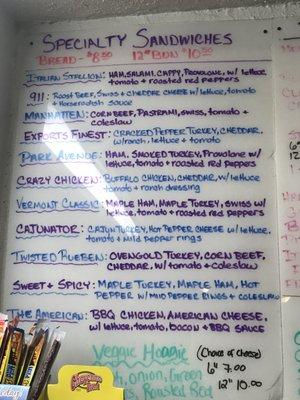 Specialty Sandwiches
Bread - $8.50 12" Bun $10.50
Italian Stallion: Ham, Salami, Cappy, Provolone, w/ lettuce,
tomato + roasted red peppers
911: Roast Beef, Swiss + cheddar cheese w/ lettuce, tomato
+ Horseradish sauce
Manhatten: Corn Beef, Pastrami, Swiss, tomato +
coleslaw
Exports Finest: Cracked Pepper Turkey, Cheddar,
w/ ranch, lettuce + tomato
Park Avenue: Ham, Smoked Turkey, Provolone w/
lettuce, tomato + roasted red peppers
Crazy Chicken: Buffalo Chicken, cheddar, w/ lettuce
tomato + ranch dressing
Vermont Classic: Maple Ham, Maple Turkey, Swiss w/
lettuce, tomato + roasted red peppers
Cajunator: Cajun Turkey, Hot Pepper Cheese w/ lettuce,
tomato + mild pepper rings
Twisted Rueben: Ovengold Turkey, Corn Beef,
Cheddar, w/ tomato + coleslaw
Sweet + Spicy: Maple Turkey, Maple Ham, Hot
Pepper w/ mild pepper rings + coleslaw
The American: BBQ Chicken, American Cheese,
w/ lettuce, tomato, bacon + BBQ sauce
Veggie Hoagie (Choice of Cheese)
6" 7.00
onion, Green
12" 10.00
Roasted Red